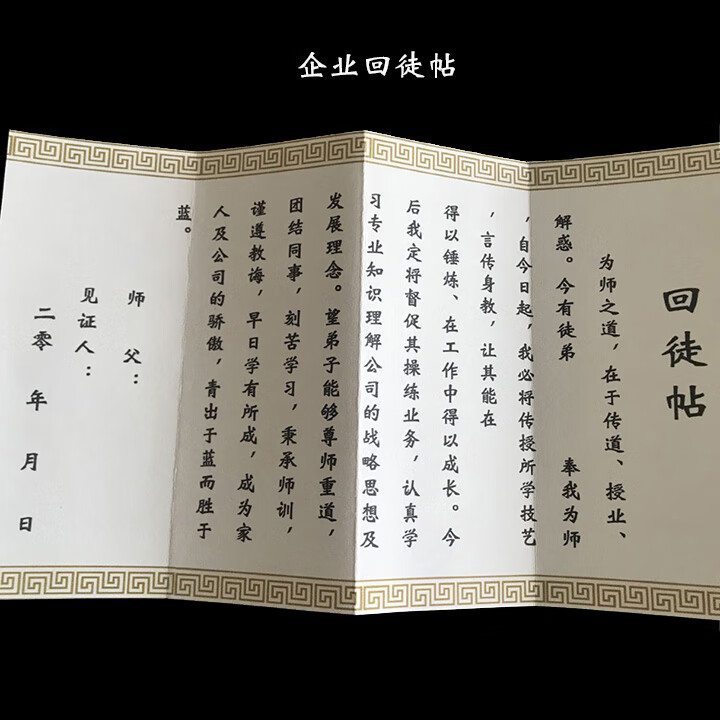 企业回徒帖
回徒帖
为师之道，在于传道、授业、
解惑。今有徒弟 奉我为师
，自今日起，我必将传授所学技艺
，言传身教，让其能在
得以锤炼、在工作中得以成长。今
后我定将督促其操练业务，认真学
习专业知识理解公司的战略思想及
发展理念。望弟子能够尊师重道，
团结同事，刻苦学习，秉承师训，
谨遵教诲，早日学有所成，成为家
人及公司的骄傲，青出于蓝而胜于
蓝。
师 父：
见证人：
二零 年 月 日